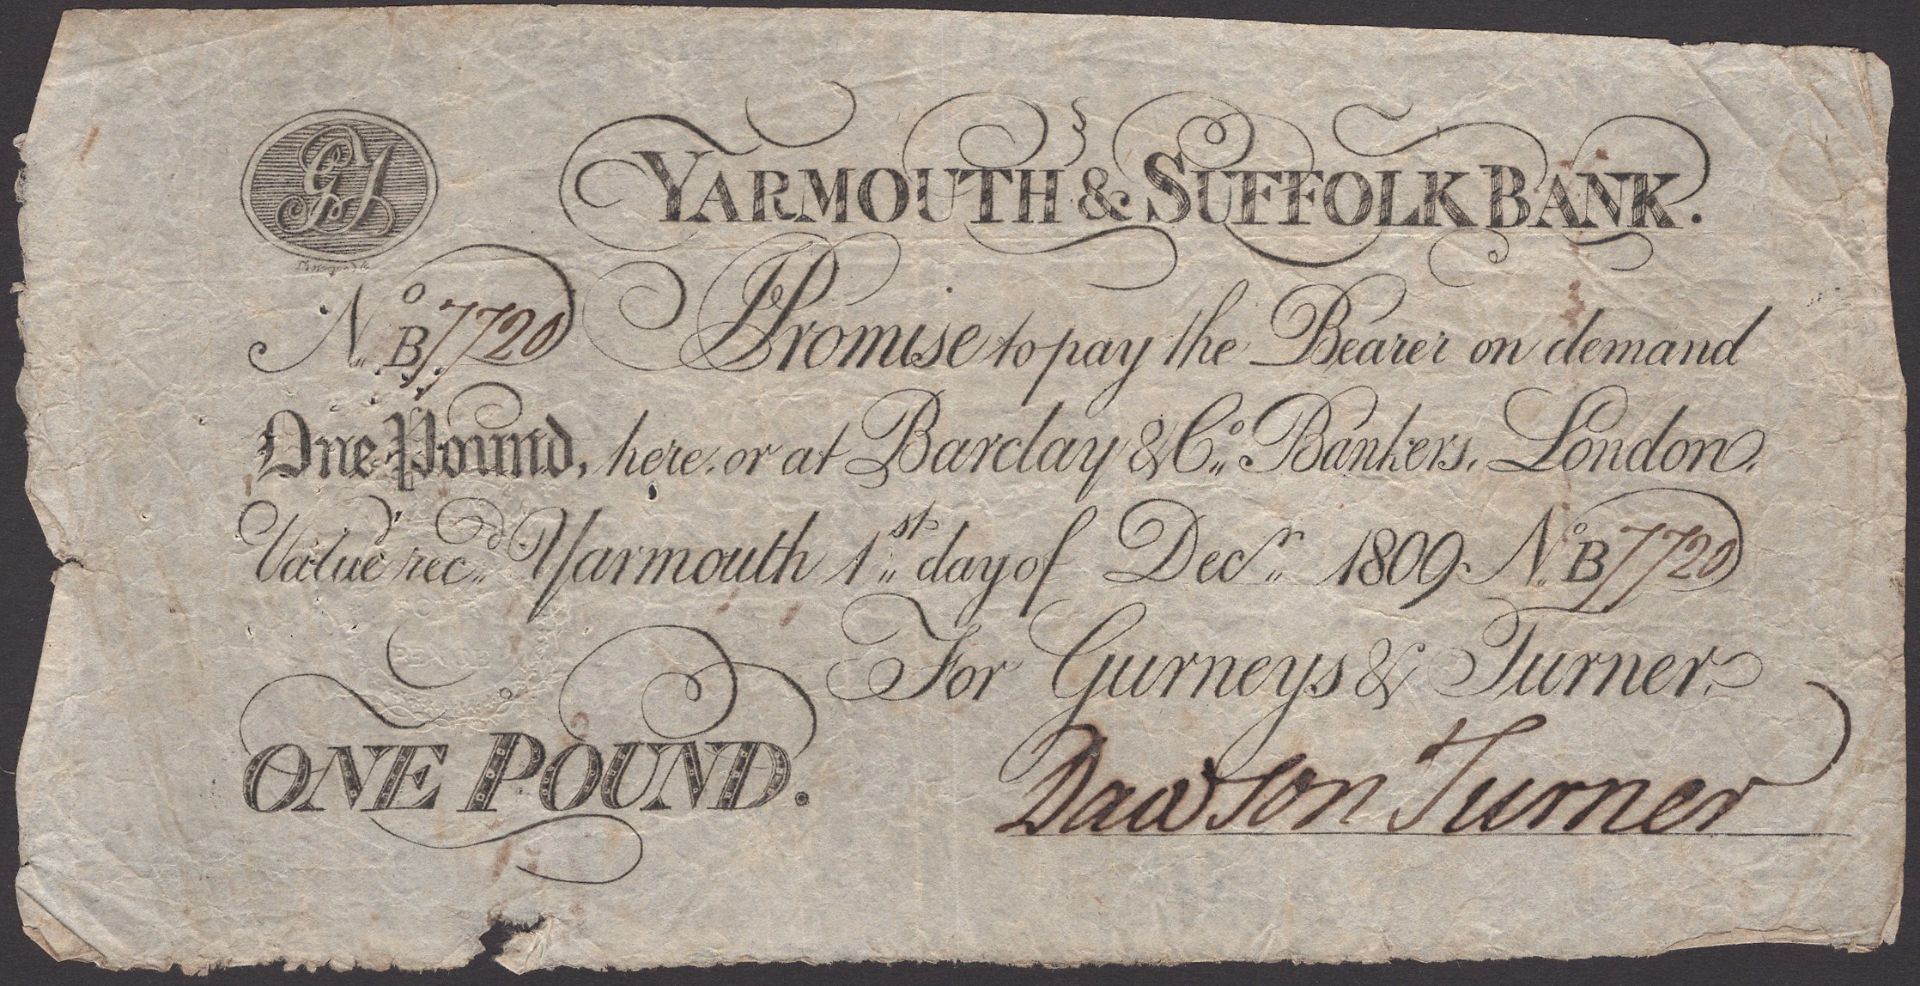 YARMOUTH & SUFFOLK BANK.
No. B7720 I Promise to pay the Bearer on demand
One Pound, here or at Barclay & Co. Bankers, London.
Value recd. Yarmouth 1st day of Decr. 1809. No. B7720
For Gurneys & Turner.
ONE POUND.
Dawson Turner
PENCE